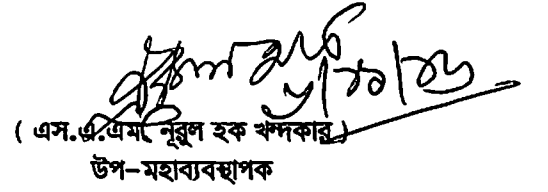 ( এস.এ.এম. নূরুল হক খন্দকার )
উপ-মহাব্যবস্থাপক